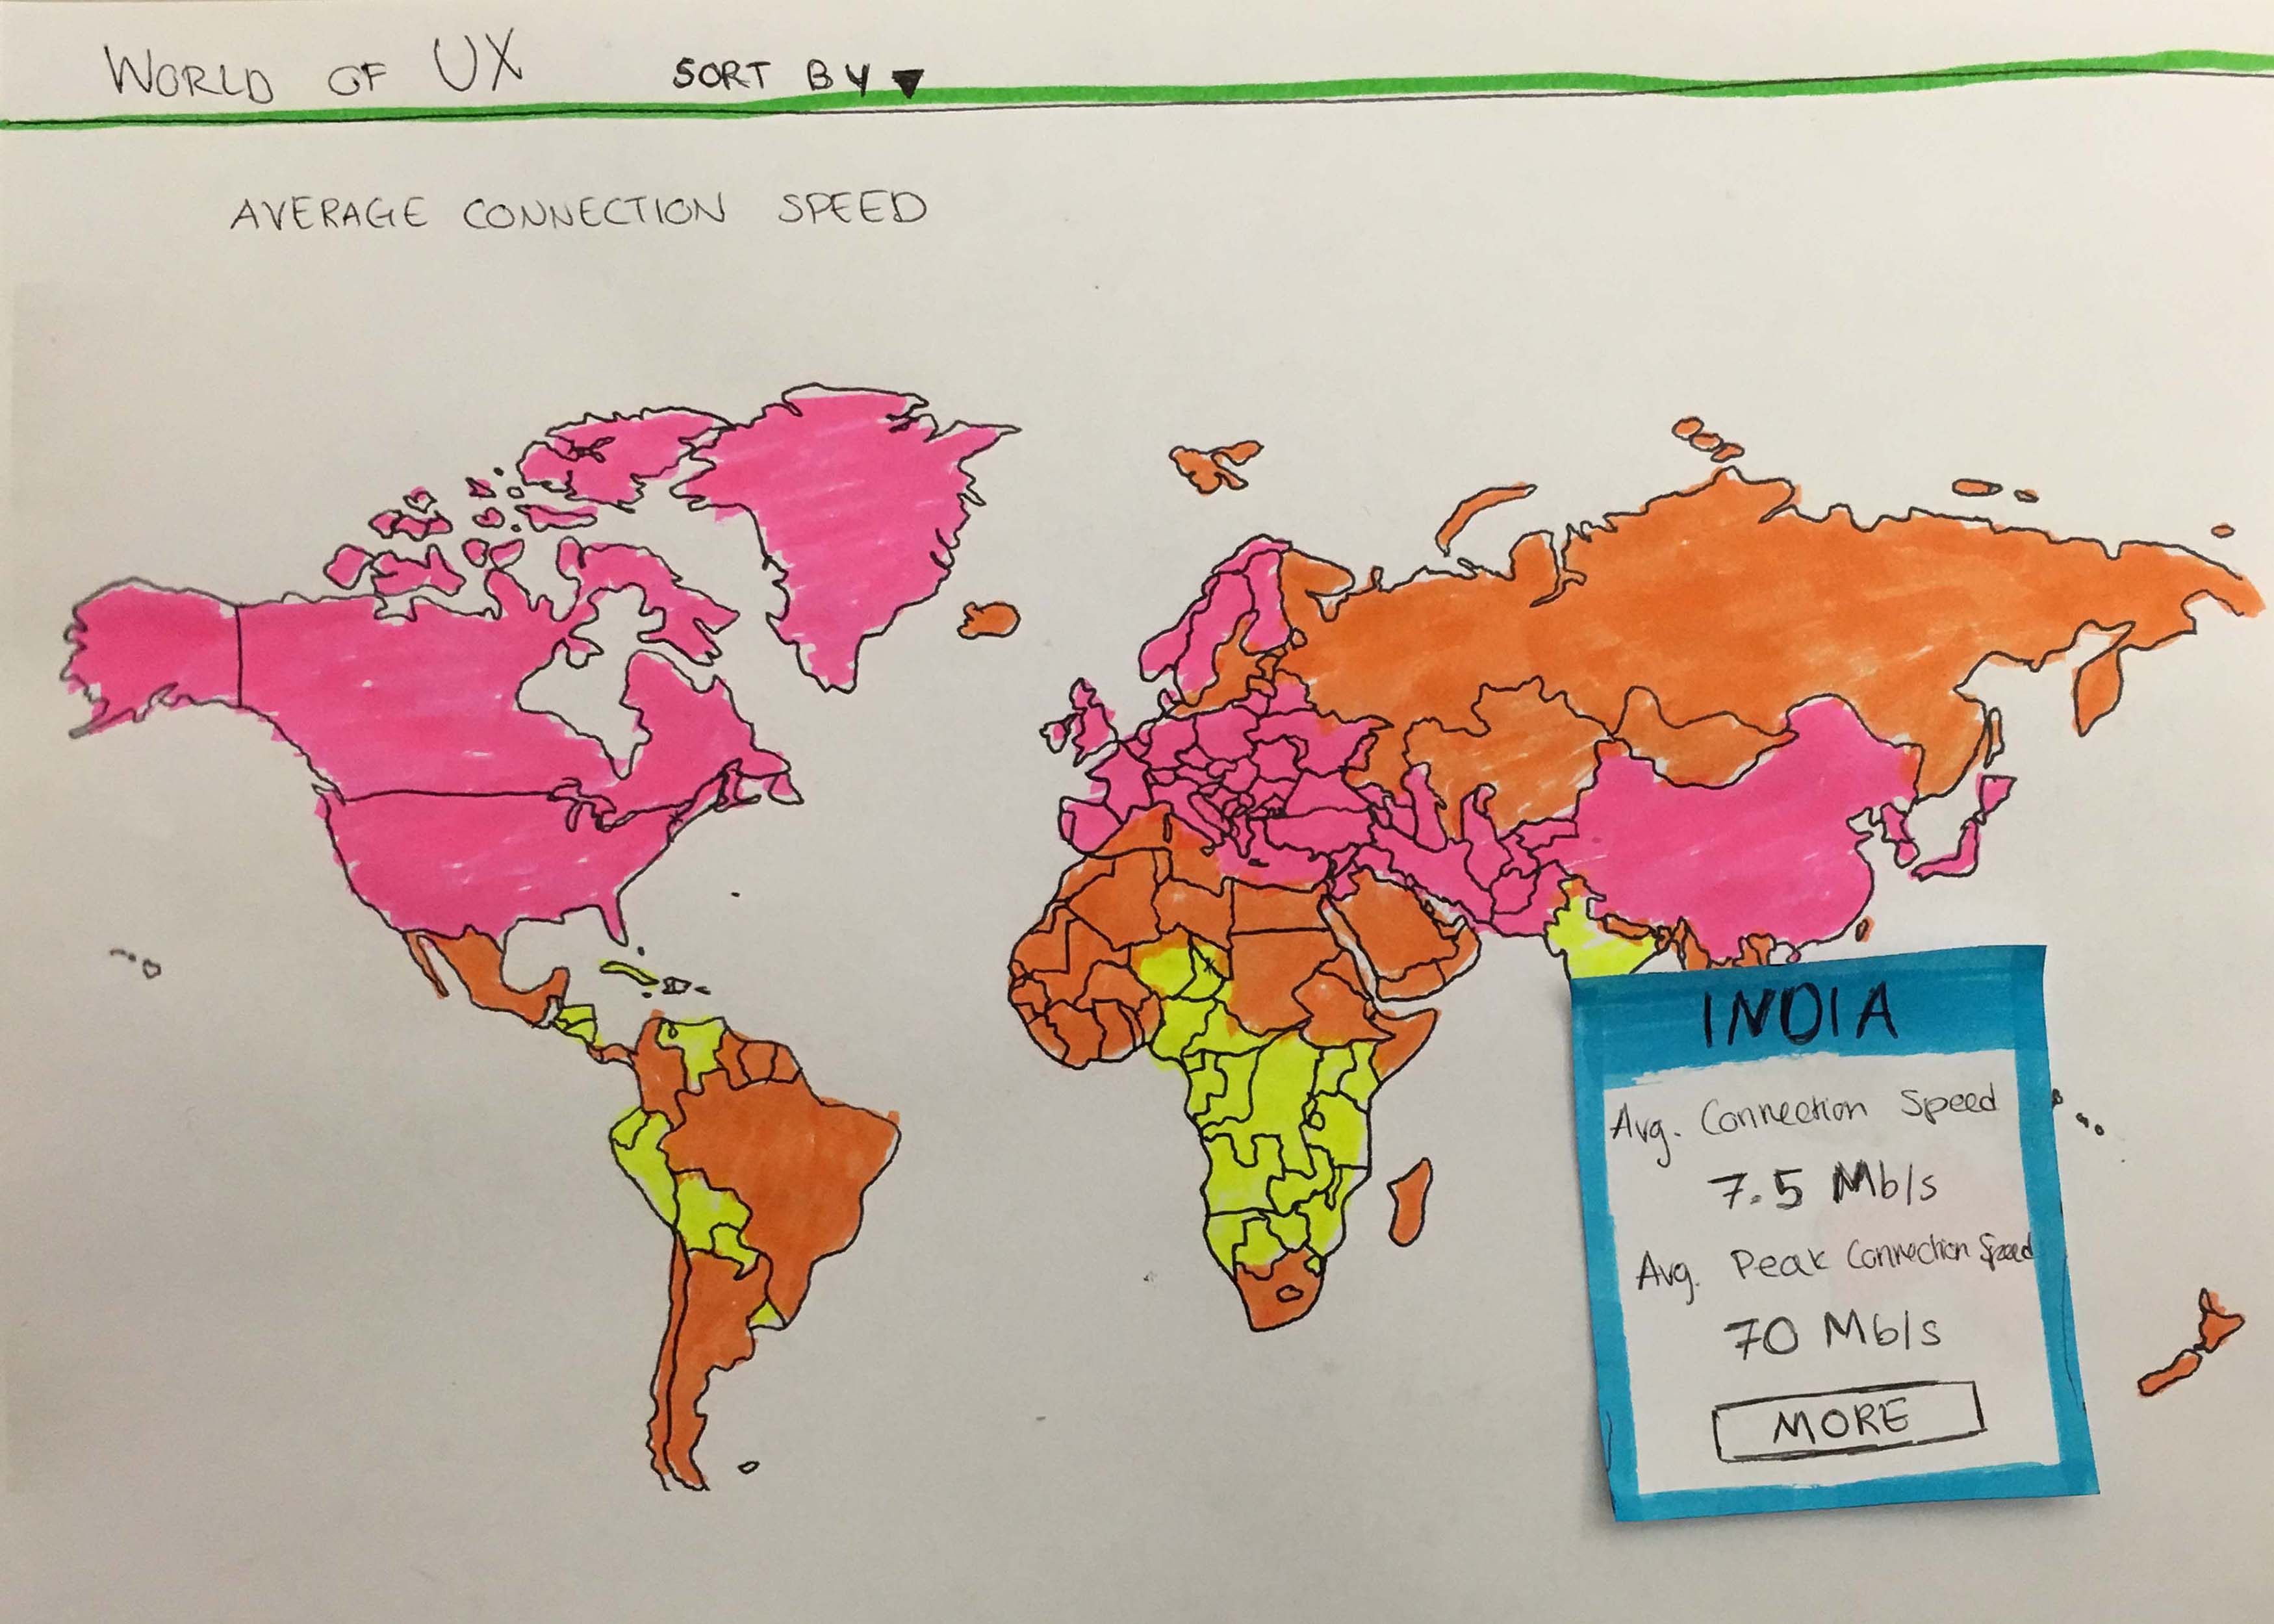 WORLD OF UX SORT BY ▼
AVERAGE CONNECTION SPEED
INDIA
Avg. Connection Speed
7.5 Mb/s
Avg. Peak Connection Speed
70 Mb/s
MORE